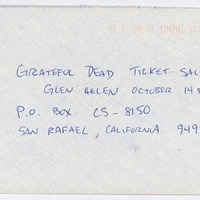 GRATEFUL DEAD TICKET SAL
GLEN HELEN OCTOBER 14
P.O. BOX CS-8150
SAN RAFAEL, CALIFORNIA 949